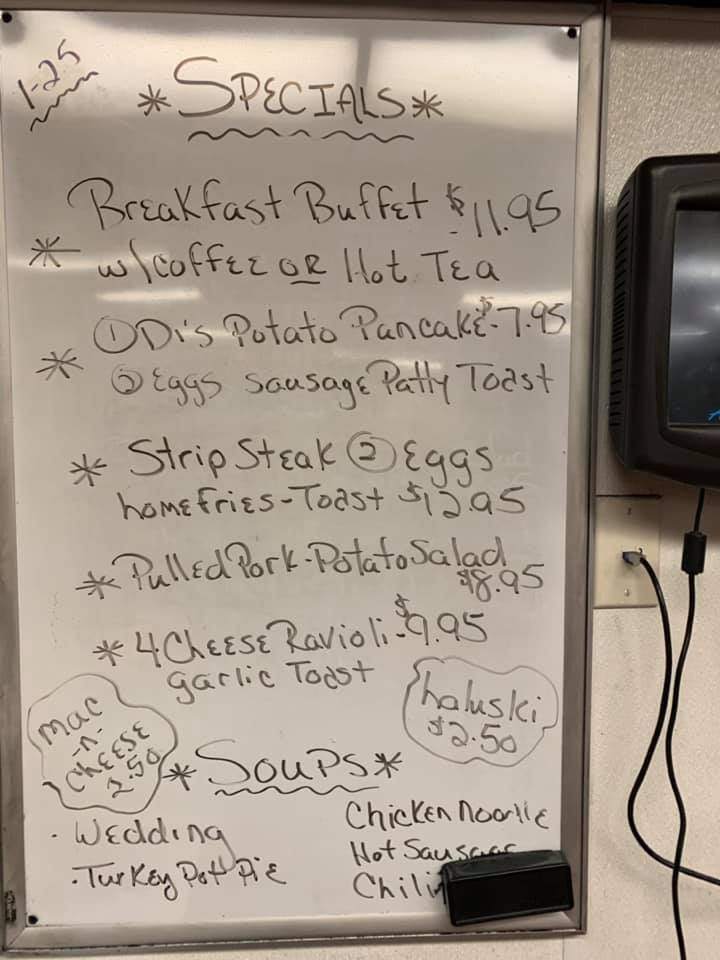 1-25
*SPECIALS*
Breakfast Buffet $11.95
* w/coffee OR Hot Tea
① Di's Potato Pancake-$7.95
* ② Eggs sausage Patty Toast
* Strip Steak ② Eggs
homefries-Toast $12.95
* Pulled Pork-Potato Salad
$8.95
* 4 Cheese Ravioli-$9.95
garlic Toast
haluski
$2.50
mac
-n-
cheese
2.50
*Soups*
Chicken Noodle
· Wedding
Hot Sausage
· Turkey Pot Pie
Chili